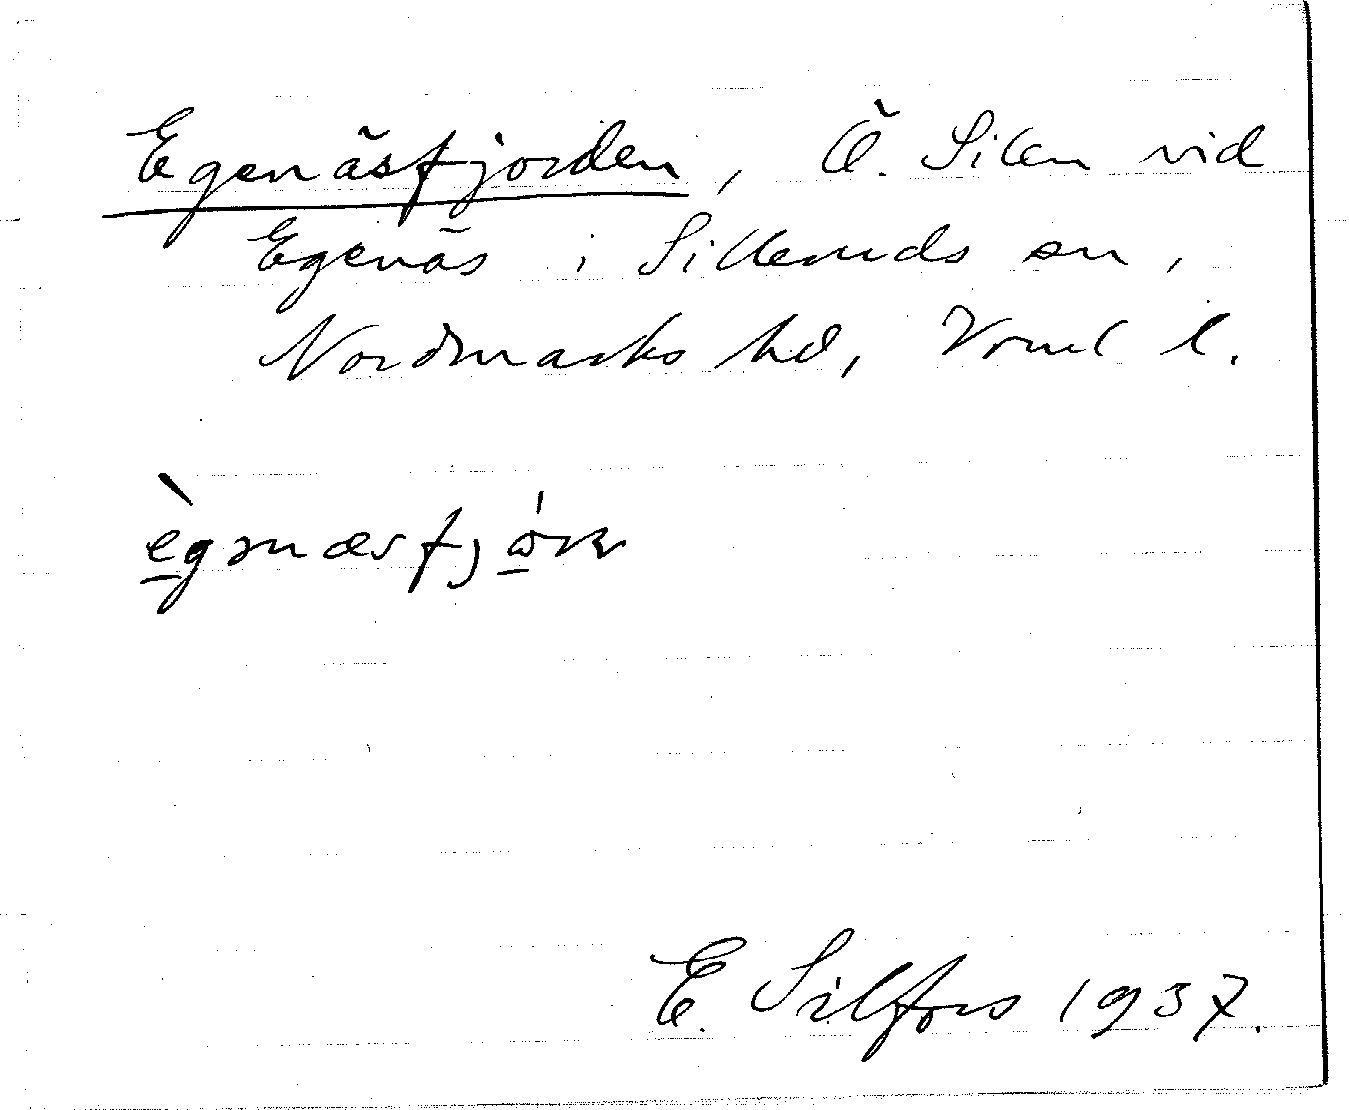 Egenäsfjorden, Ö. Silen vid
Egenäs i Silleruds sn,
Nordmarks hd, Vrml l.
E. Silfors 1937.